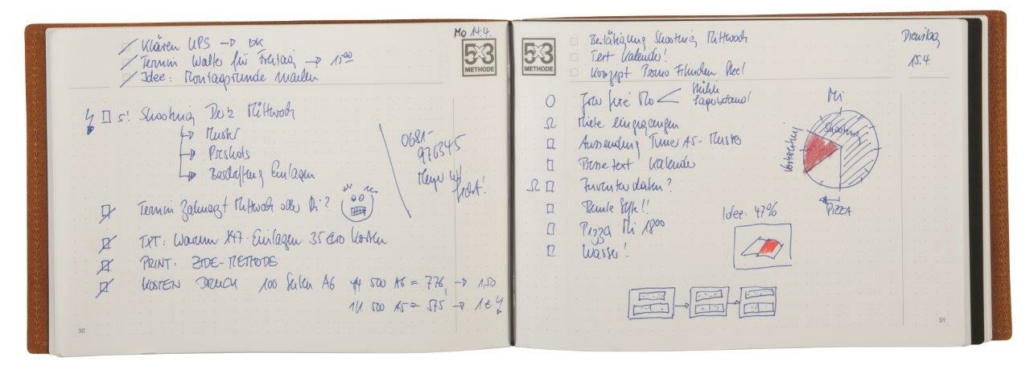 Mo 14.4.
Klären UPS → OK
Termin Walter für Freitag → 15⁰⁰
Idee: Montagsrunde
5X3
METHODE
5! Shooting Mittwoch
→ Muster
→
→ Beschaffung Einlagen
0681-
976345
Meyer
Termin Zahnarzt Mittwoch oder Di?
TXT: Warum X47-Einlagen 35 Euro kosten
PRINT: METHODE
KOSTEN DRUCK 100 Seiten A6 4/4 500 A6 = 776, → 1,50
1/1 500 A5 = 575 → 1 €
50
5X3
METHODE
Bestätigung Shooting Mittwoch
Text Kalender!
Konzept Promo
Dienstag
15.4
Jour fixe Mo
Miete eingegangen
Aussendung Timer A5-Muster
Pressetext Kalender
Inventardaten?
Bunte Stifte!!
Pizza Mi 18⁰⁰
Wasser!
Mi
Shooting
Vorbereitung
PIZZA
Idee: 47%
51